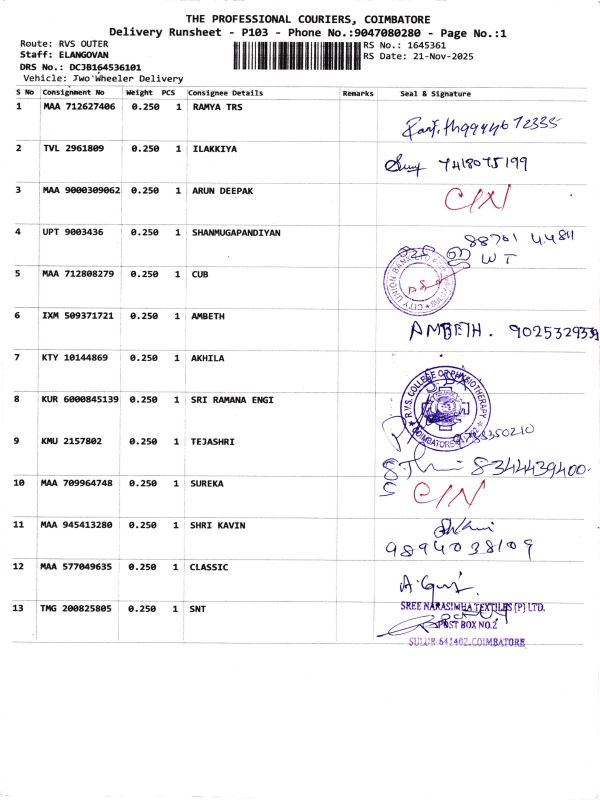 THE PROFESSIONAL COURIERS, COIMBATORE
Delivery Runsheet - P103 - Phone No.:9047080280 - Page No.:1
Route: RVS OUTER
RS No.: 1645361
Staff: ELANGOVAN
RS Date: 21-Nov-2025
DRS No.: DCJB164536101
Vehicle: Two Wheeler Delivery
S No Consignment No Weight PCS Consignee Details Remarks Seal & Signature
1 MAA 712627406 0.250 1 RAMYA TRS
2 TVL 2961809 0.250 1 ILAKKIYA 7418075199
3 MAA 9000309062 0.250 1 ARUN DEEPAK
4 UPT 9003436 0.250 1 SHANMUGAPANDIYAN
WT
5 MAA 712808279 0.250 1 CUB
CITY UNION BANK LTD
6 IXM 509371721 0.250 1 AMBETH AMBETH.
7 KTY 10144869 0.250 1 AKHILA
R.V.S. COLLEGE OF PHYSIOTHERAPY
COIMBATORE
8 KUR 6000845139 0.250 1 SRI RAMANA ENGI
9 KMU 2157802 0.250 1 TEJASHRI
8344439400
10 MAA 709964748 0.250 1 SUREKA C/N
11 MAA 945413280 0.250 1 SHRI KAVIN
9894038109
12 MAA 577049635 0.250 1 CLASSIC
13 TMG 200825805 0.250 1 SNT
SREE NARASIMHA TEXTILES (P) LTD.
POST BOX NO.2
SULUR 641402. COIMBATORE